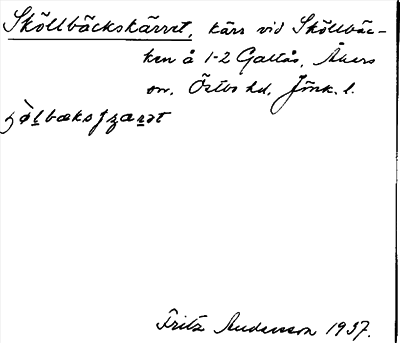 Sköllbäckskärret, kärr vid Sköllbäc-
ken å 1-2 Gallås, Åkers
sn. Östbo hd. Jönk. l.
Fritz Andersson 1937.